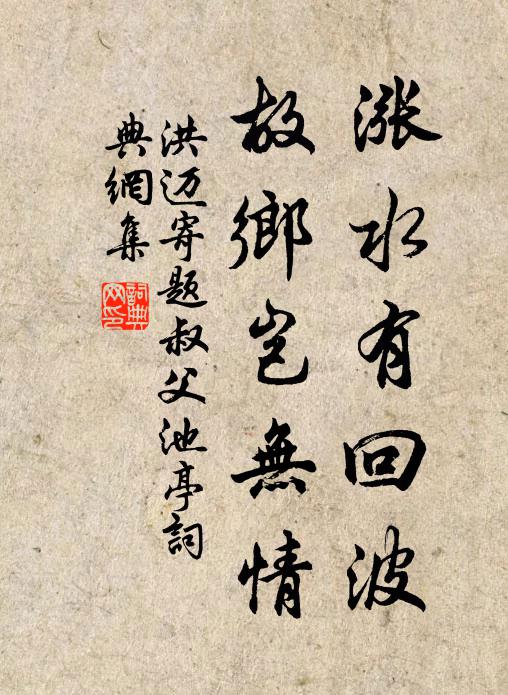 漲水有回波
故鄉豈無情
洪迈寄题叔父池亭詞
典網集
詞典网印